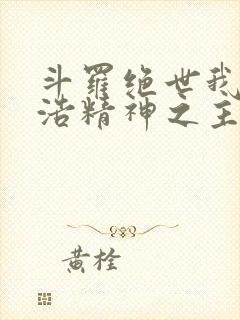 斗罗绝世我
浩精神之主
黄栓